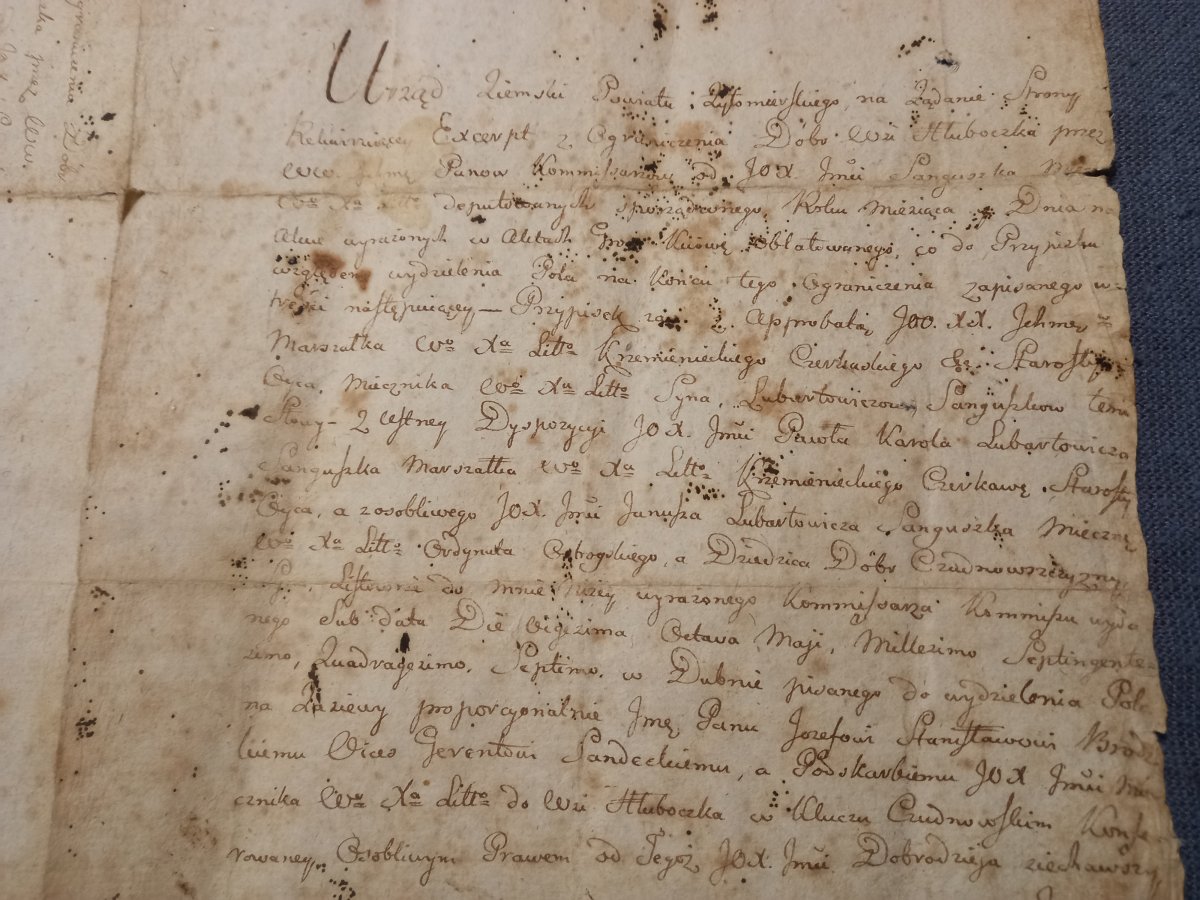 Urząd Ziemski Powiatu Żytomierskiego, na Żądanie Strony
Rekwirującey Excerpt z Ograniczenia Dobr Wsi Hłuboczka przez
WW Jchmę Panow Kommissarzow od JOX Jmći Sanguszka
Wo Xa Litto deputowanych sporządzonego, Roku Miesiąca Dnia na
Akcie wyrażonych w Aktach Kiiowę oblatowanego, co do Przypisku
względem wydzielenia Pola na końcu tego Ograniczenia zapisanego w
treści następuiącey — Przypisek z Approbatą JOO. XX. Jchmę
Marszałka Wo Xa Litto Krzemienieckiego Czerkaskiego &ę Starosty
Oyca, Miecznika Wo Xa Litto Syna, Lubartowiczow Sanguszkow temi
Słowy – Z Ustney Dyspozycyi JOX. Jmći Pawła Karola Lubartowicza
Sanguszka Marszałka Wo Xa Litto Krzemienieckiego Czerkawę Starosty
Oyca, a zosobliwego JOX. Jmći Janusza Lubartowicza Sanguszka Miecznę
Wo Xa Litto Ordynata Ostrogskiego, a Dziedzica Dobr Czudnowszczyzny
Listownie do mnie niżey wyrażonego Kommissarza Kommissu wyda
nego Sub data Die Vigezima Octava Maji, Millezimo Septingente-
zimo, Quadragezimo, Septimo, w Dubnie pisanego do wydzielenia Pol
na Łaziewy proporcyonalnie Jmę Panu Jozefowi Stanisławowi Brodz
kiemu Vices Gerentowi Sandeckiemu, a Podskarbiemu JOX Jmći Mie
cznika Wo Xa Litto do Wsi Hłuboczka w Kluczu Czudnowskim Konfe-
rowaney, Osobliwym Prawem od Tegoż JOX. Jmći Dobrodzieja ziechawszy